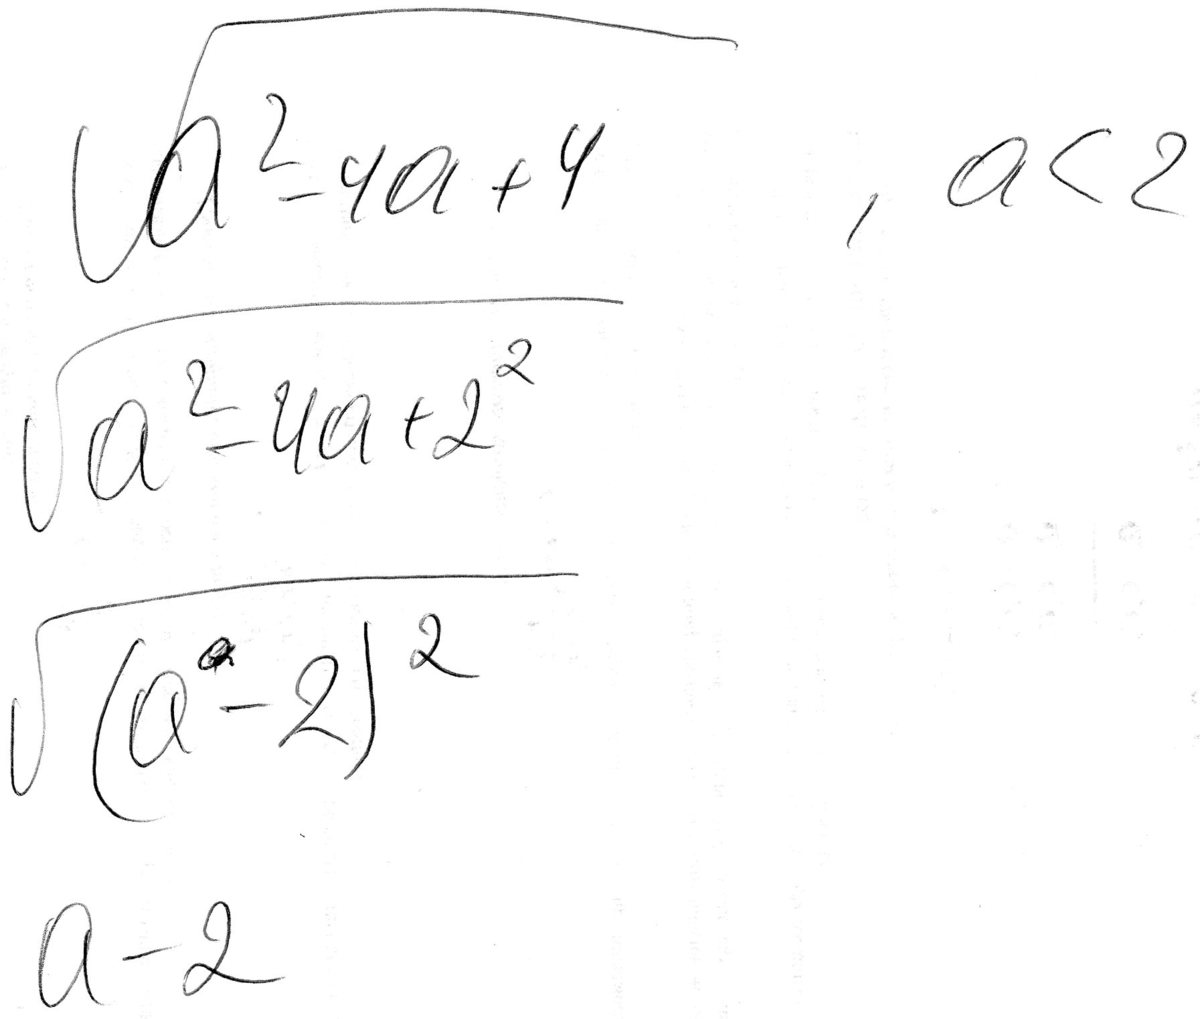 √(a² - 4a + 4) , a < 2
√(a² - 4a + 2²)
√((a - 2)²)
a - 2